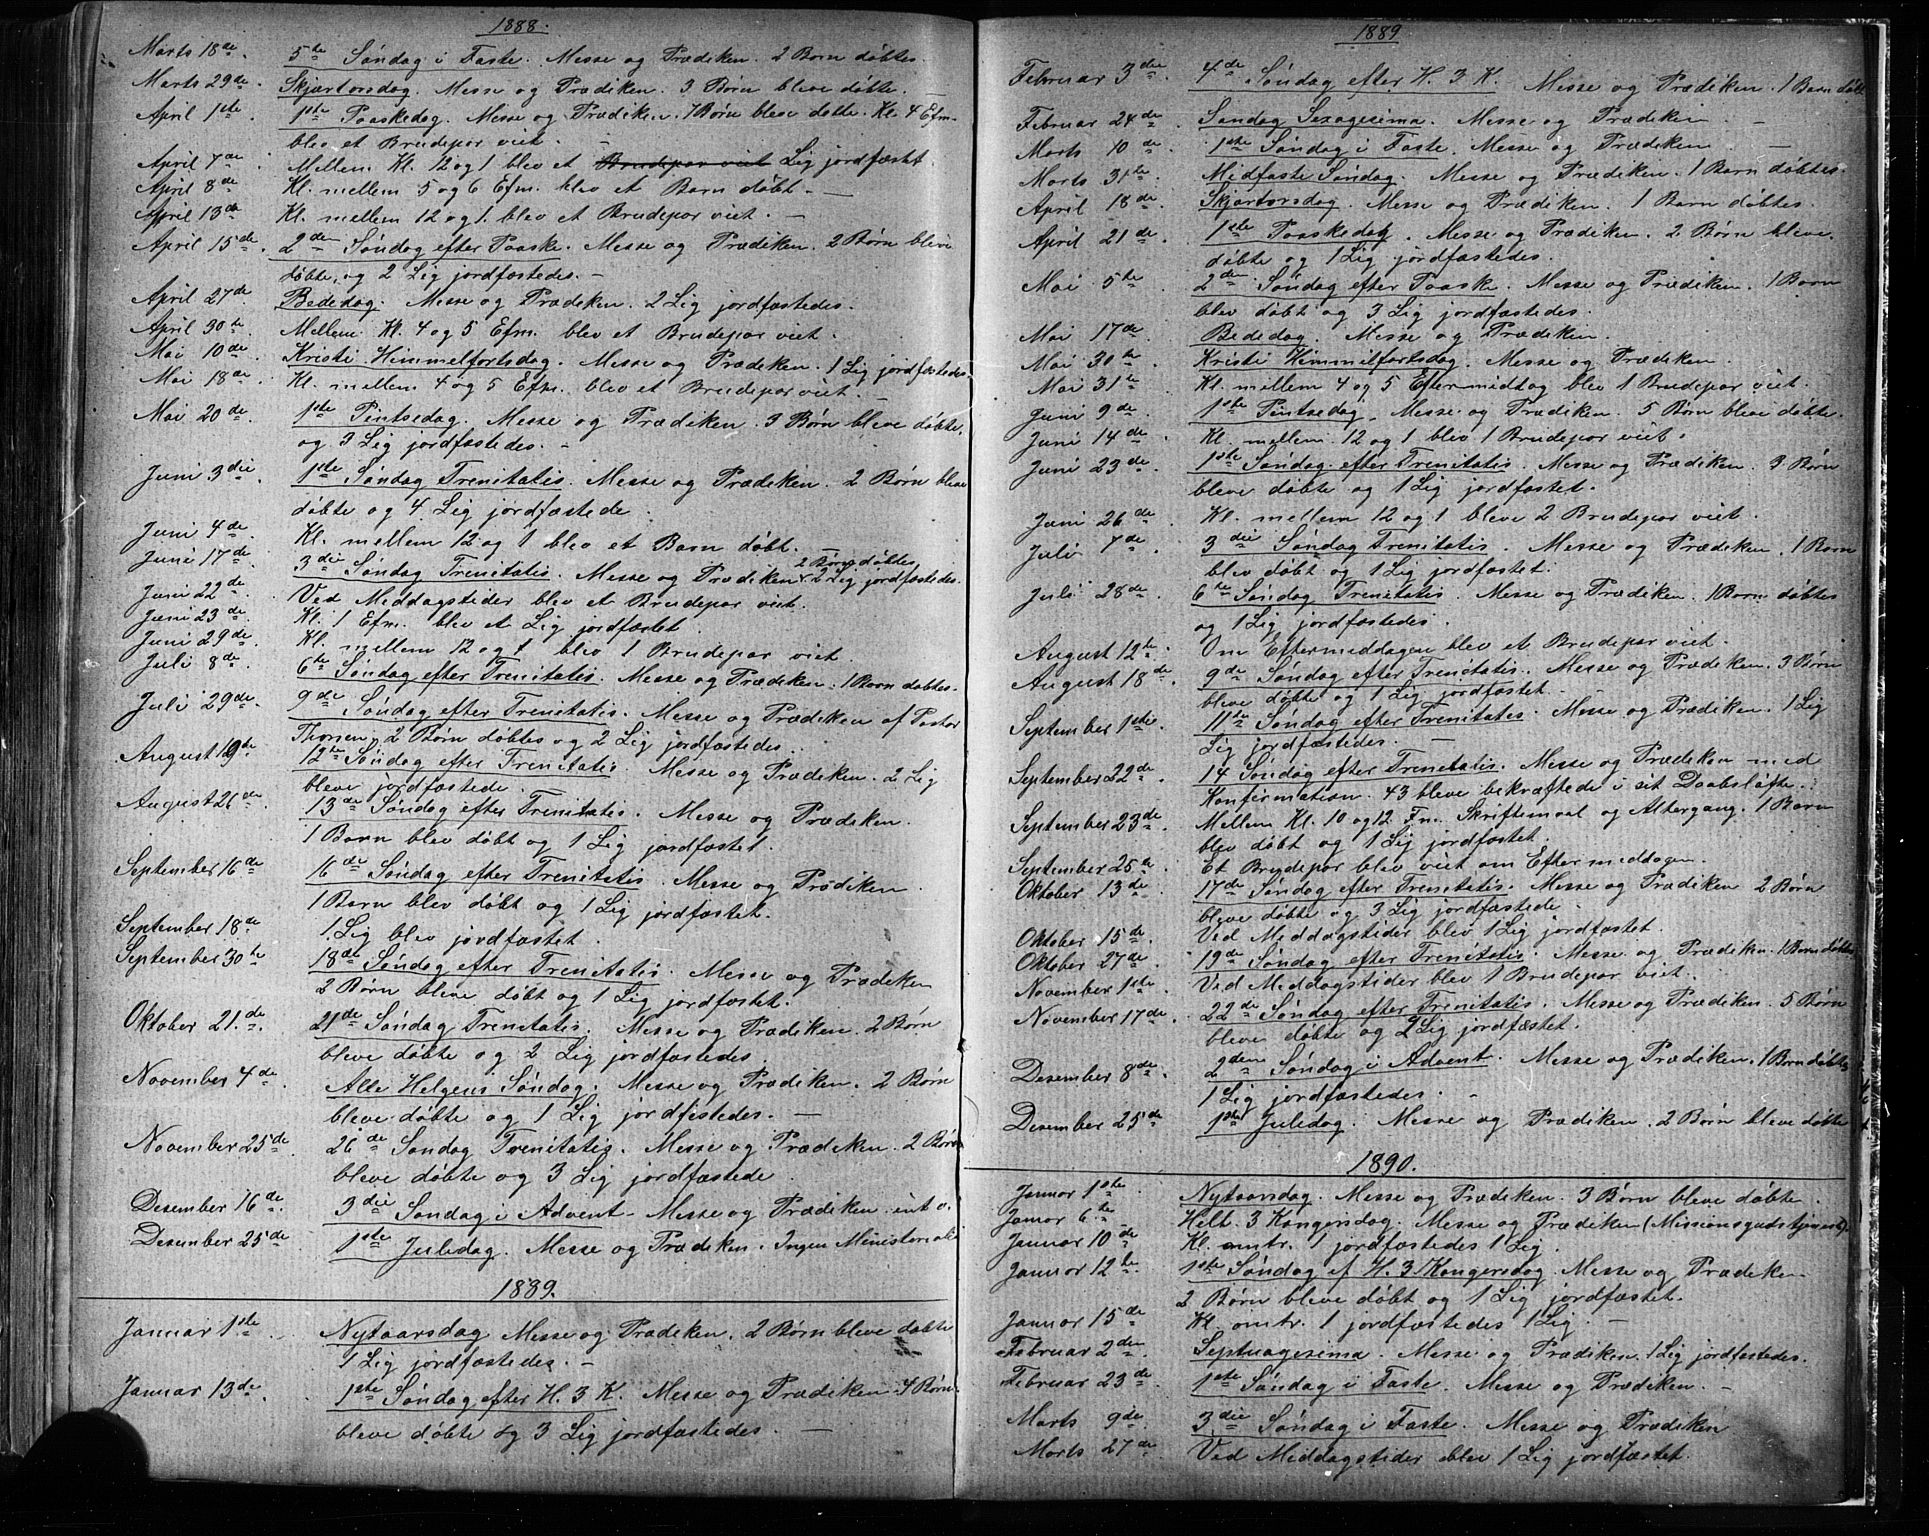 1888.
Marts 18de 5te Søndag i Faste. Messe og Prædiken. 2 Børn døbtes.
Marts 29de Skjærtorsdag. Messe og Prædiken. 3 Børn bleve døbte.
April 1ste 1ste Paaskedag. Messe og Prædiken. 7 Børn bleve døbte. Kl. 4 Efm.
blev et Brudepar viet. —
April 7de Mellem Kl. 12 og 1 blev et Brudepar viet Lig jordfæstet.
April 8de Kl. mellem 5 og 6 Efm. blev et Barn døbt. —
April 13de Kl. mellem 12 og 1. blev et Brudepar viet. —
April 15de 2den Søndag efter Paaske. Messe og Prædiken. 2 Børn bleve
døbte, og 2 Lig jordfæstedes. —
April 27de Bededag. Messe og Prædiken. 2 Lig jordfæstedes.
April 30te Mellem Kl. 4 og 5 Efm. blev et Brudepar viet.
Mai 10de Kristi Himmelfartsdag. Messe og Prædiken. 1 Lig jordfæstedes
Mai 18de Kl. mellem 4 og 5 Efm. blev et Brudepar viet. —
Mai 20de 1ste Pintsedag. Messe og Prædiken. 3 Børn bleve døbte,
og 3 Lig jordfæstedes. —
Juni 3die 1ste Søndag Trenitatis. Messe og Prædiken. 2 Børn bleve
døbte og 4 Lig jordfæstede.
Juni 4de Kl. mellem 12 og 1 blev et Barn døbt.
Juni 17de 3die Søndag Trenitatis. Messe og Prædiken. 2 Børn døbtes 2 Lig jordfæstedes.
Juni 22de Ved Middagstider blev et Brudepar viet.
Juni 23de Kl. 1 Efm. blev et Lig jordfæstet.
Juni 29de Kl. mellem 12 og 1 blev 1 Brudepar viet.
Juli 8de 6te Søndag efter Trenitatis. Messe og Prædiken. 1 Barn døbtes.
Juli 29de 9de Søndag efter Trenitatis. Messe og Prædiken af Pastor
Thorsen, 2 Børn døbtes og 2 Lig jordfæstedes.
August 19de 12te Søndag efter Trenitatis. Messe og Prædiken. 2 Lig
bleve jordfæstede.
August 26de 13de Søndag efter Trenitatis. Messe og Prædiken.
1 Barn blev døbt og 1 Lig jordfæstet.
September 16de 16de Søndag efter Trenitatis. Messe og Prædiken
1 Barn blev døbt og 1 Lig jordfæstet.
September 18de 1 Lig blev jordfæstet.
September 30te 18de Søndag efter Trenitatis. Messe og Prædiken
2 Børn bleve døbt og 1 Lig jordfæstet.
Oktober 21.de 21de Søndag Trenitatis. Messe og Prædiken. 2 Børn
bleve døbte og 2 Lig jordfæstedes.
November 4de Alle Helgens Søndag. Messe og Prædiken. 2 Børn
bleve døbte og 1 Lig jordfæstedes. —
November 25de 26de Søndag Trenitatis. Messe og Prædiken. 2 Børn
bleve døbte og 3 Lig jordfæstede
Desember 16de 3die Søndag i Advent. Messe og Prædiken
Desember 25de 1ste Juledag. Messe og Prædiken. Ingen
1889.
Januar 1ste Nytaarsdag Messe og Prædiken. 2 Børn bleve døbte
1 Lig jordfæstedes. —
Januar 13de 1ste Søndag efter H. 3 K. Messe og Prædiken. 4 Børn
bleve døbte og 3 Lig jordfæstedes. —
1889
Februar 3die 4de Søndag efter H. 3 K. Messe og Prædiken. 1 Barn døbt
Februar 24de Søndag Sexagesima. Messe og Prædiken —
Marts 10de 1ste Søndag i Faste. Messe og Prædiken —
Marts 31te Midfaste Søndag. Messe og Prædiken. 1 Barn døbtes.
April 18de Skjærtorsdag. Messe og Prædiken. 1 Barn døbtes.
April 21de 1ste Paaskedag. Messe og Prædiken. 2 Børn bleve
døbte og 1 Lig jordfæstedes.
Mai 5te 2den Søndag efter Paaske. Messe og Prædiken. 1 Barn
blev døbt og 3 Lig jordfæstedes.
Mai 17de Bededag. Messe og Prædiken.
Mai 30te Kristi Himmelfartsdag. Messe og Prædiken.
Mai 31te Kl. mellem 4 og 5 Eftermiddag blev 1 Brudepar viet.
Juni 9de 1ste Pintsedag. Messe og Prædiken. 5 Børn bleve døbte.
Juni 14de Kl. mellem 12 og 1 blev 1 Brudepar viet.
Juni 23de 1ste Søndag efter Trenitatis. Messe og Prædiken. 3 Børn
bleve døbte og 1 Lig jordfæstet.
Juni 26de Kl. mellem 12 og 1 bleve 2 Brudepar viet.
Juli 7de 3die Søndag Trenitatis. Messe og Prædiken. 1 Barn
blev døbt og 1 Lig jordfæstet.
Juli 28de 6te Søndag Trenitatis. Messe og Prædiken. 1 Barn døbtes
og 1 Lig jordfæstedes.
August 12te Om Eftermiddagen blev et Brudepar viet.
August 18de 9de Søndag efter Trenitatis. Messe og Prædiken. 3 Børn
bleve døbte og 1 Lig jordfæstet. —
September 1ste 11te Søndag efter Trenitatis. Messe og Prædiken. 1 Lig
Lig jordfæstedes. —
September 22de 14 Søndag efter Trenitatis. Messe og Prædiken med
Konfirmation. 43 bleve bekræftede i sit Daabsløfte.
September 23de Mellem Kl. 10 og 12 Fm. Skriftemaal og Altergang. 1 Barn
blev døbt og 1 Lig jordfæstet.
September 25de Et Brudepar blev viet om Eftermiddagen.
Oktober 13de 17de Søndag efter Trenitatis. Messe og Prædiken 2 Børn
bleve døbte og 3 Lig jordfæstede.
Oktober 15de Ved Middagstider blev 1 Lig jordfæstet.
Oktober 27de 19de Søndag efter Trenitatis. Messe og Prædiken. 1 Barn døbtes
November 1ste Ved Middagstider blev 1 Brudepar viet.
November 17de 22de Søndag efter Trenitatis. Messe og Prædiken. 5 Børn
bleve døbte og 2 Lig jordfæstet.
Desember 8de 2den Søndag i Advent. Messe og Prædiken. 1 Barn døbtes
1 Lig jordfæstedes. -
Desember 25de 1ste Juledag. Messe og Prædiken. 2 Børn bleve døbte
1890.
Januar 1ste Nytaarsdag. Messe og Prædiken. 3 Børn bleve døbte.
Januar 6te Hell. 3 Kongersdag. Messe og Prædiken
Januar 10de Kl. omtr. 1 jordfæstedes 1 Lig.
Januar 12te 1ste Søndag ef H. 3 Kongersdag. Messe og Prædiken.
2 Børn bleve døbt og 1 Lig jordfæstet.
Januar 15de Kl. omtr. 1 jordfæstedes 1 Lig. —
Februar 2den Septuagesima. Messe og Prædiken. 1 Lig jordfæstedes.
Februar 23de 1ste Søndag i Faste. Messe og Prædiken. —
Marts 9de 3die Søndag i Faste. Messe og Prædiken
Marts 27de Ved Middagstider blev 1 Lig jordfæstet.